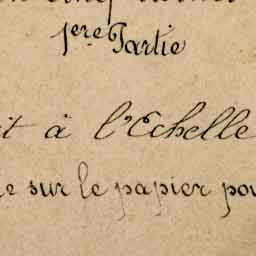 1ère Partie
it à l'Echelle
e sur le papier pou